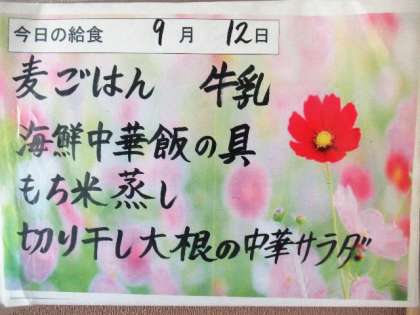 今日の給食 9月 12日
麦ごはん 牛乳
海鮮中華飯の具
もち米蒸し
切り干し大根の中華サラダ